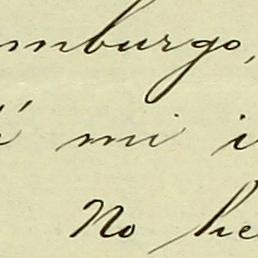 mburgo,
mi
No he